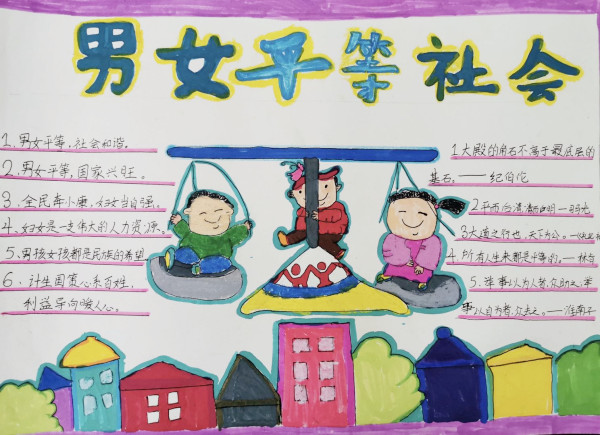 男女平等社会
1、男女平等,社会和谐。
2、男女平等,国家兴旺。
3、全民奔小康,妇女当自强。
4、妇女是一支伟大的人力资源。
5、男孩女孩都是民族的希望
6、计生国策心系百姓,
利益导向暖人心。
1大殿的角石不高于最底层的
基石。——纪伯伦
2.平而后清,清而后明
3大道之行也,天下为公。
4.所有人生来都是平等的,一林肯
5、举事以为人者,众助之,举
事以自为者,众去之。——淮南子